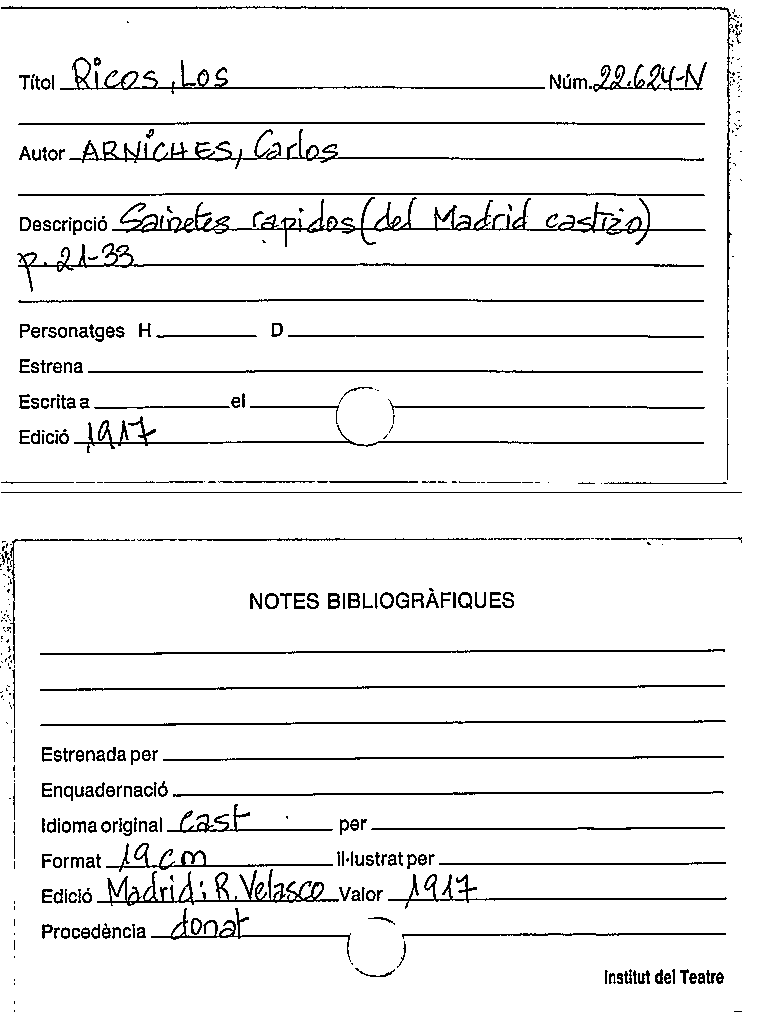 Títol Ricos, Los Núm. 22.624-N
Autor ARNICHES, Carlos
Descripció Sainetes rapidos (del Madrid castizo)
p. 21-33
Personatges H D
Estrena
Escrita a el
Edició 1917
NOTES BIBLIOGRÀFIQUES
Estrenada per
Enquadernació
Idioma original cast per
Format 19 cm il·lustrat per
Edició Madrid: R. Velasco Valor 1917
Procedència donat
Institut del Teatre